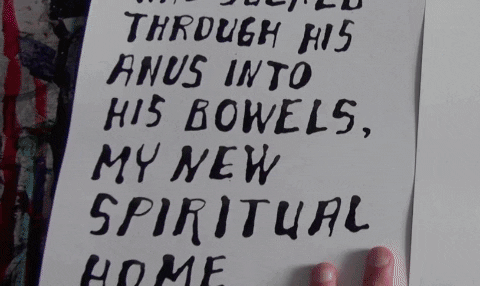 THROUGH HIS
ANUS INTO
HIS BOWELS,
MY NEW
SPIRITUAL
HOME